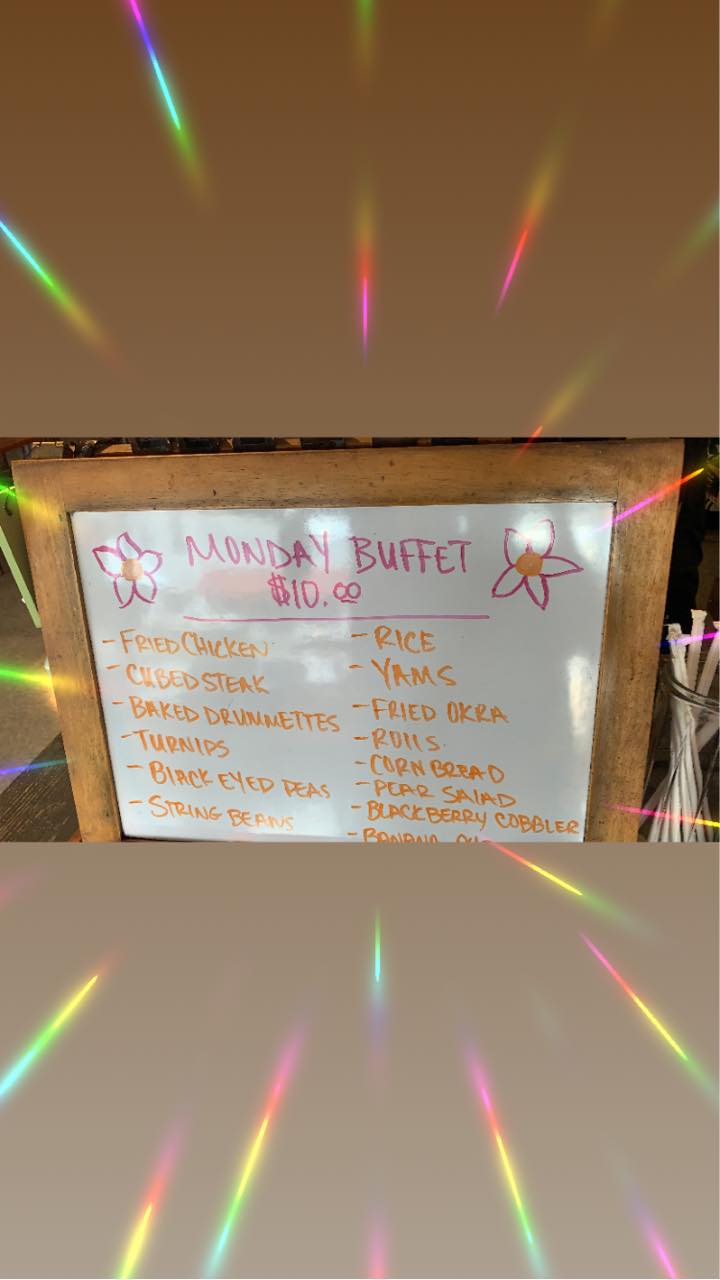 MONDAY BUFFET
$10.00
- FRIED CHICKEN
- CUBED STEAK
- BAKED DRUMMETTES
- TURNIPS
- BLACK EYED PEAS
- STRING BEANS
- RICE
- YAMS
- FRIED OKRA
- ROLLS.
- CORN BREAD
- PEAR SALAD
- BLACKBERRY COBBLER
- BANANA